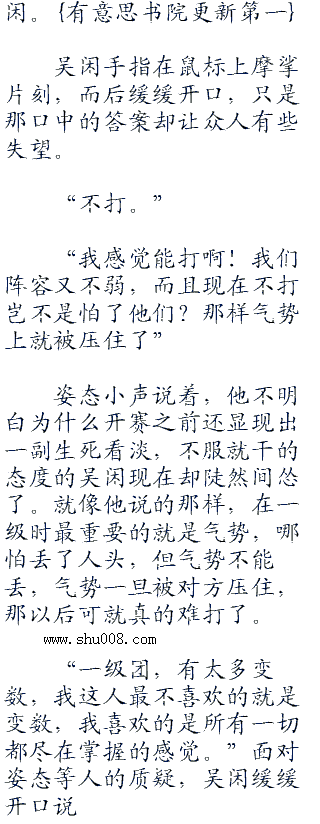 闲。{有意思书院更新第一}
吴闲手指在鼠标上摩挲
片刻，而后缓缓开口，只是
那口中的答案却让众人有些
失望。
“不打。”
“我感觉能打啊！我们
阵容又不弱，而且现在不打
岂不是怕了他们？那样气势
上就被压住了”
姿态小声说着，他不明
白为什么开赛之前还显现出
一副生死看淡，不服就干的
态度的吴闲现在却陡然间怂
了。就像他说的那样，在一
级时最重要的就是气势，哪
怕丢了人头，但气势不能
丢，气势一旦被对方压住，
那以后可就真的难打了。
www.shu008.com
“一级团，有太多变
数，我这人最不喜欢的就是
变数，我喜欢的是所有一切
都尽在掌握的感觉。”面对
姿态等人的质疑，吴闲缓缓
开口说